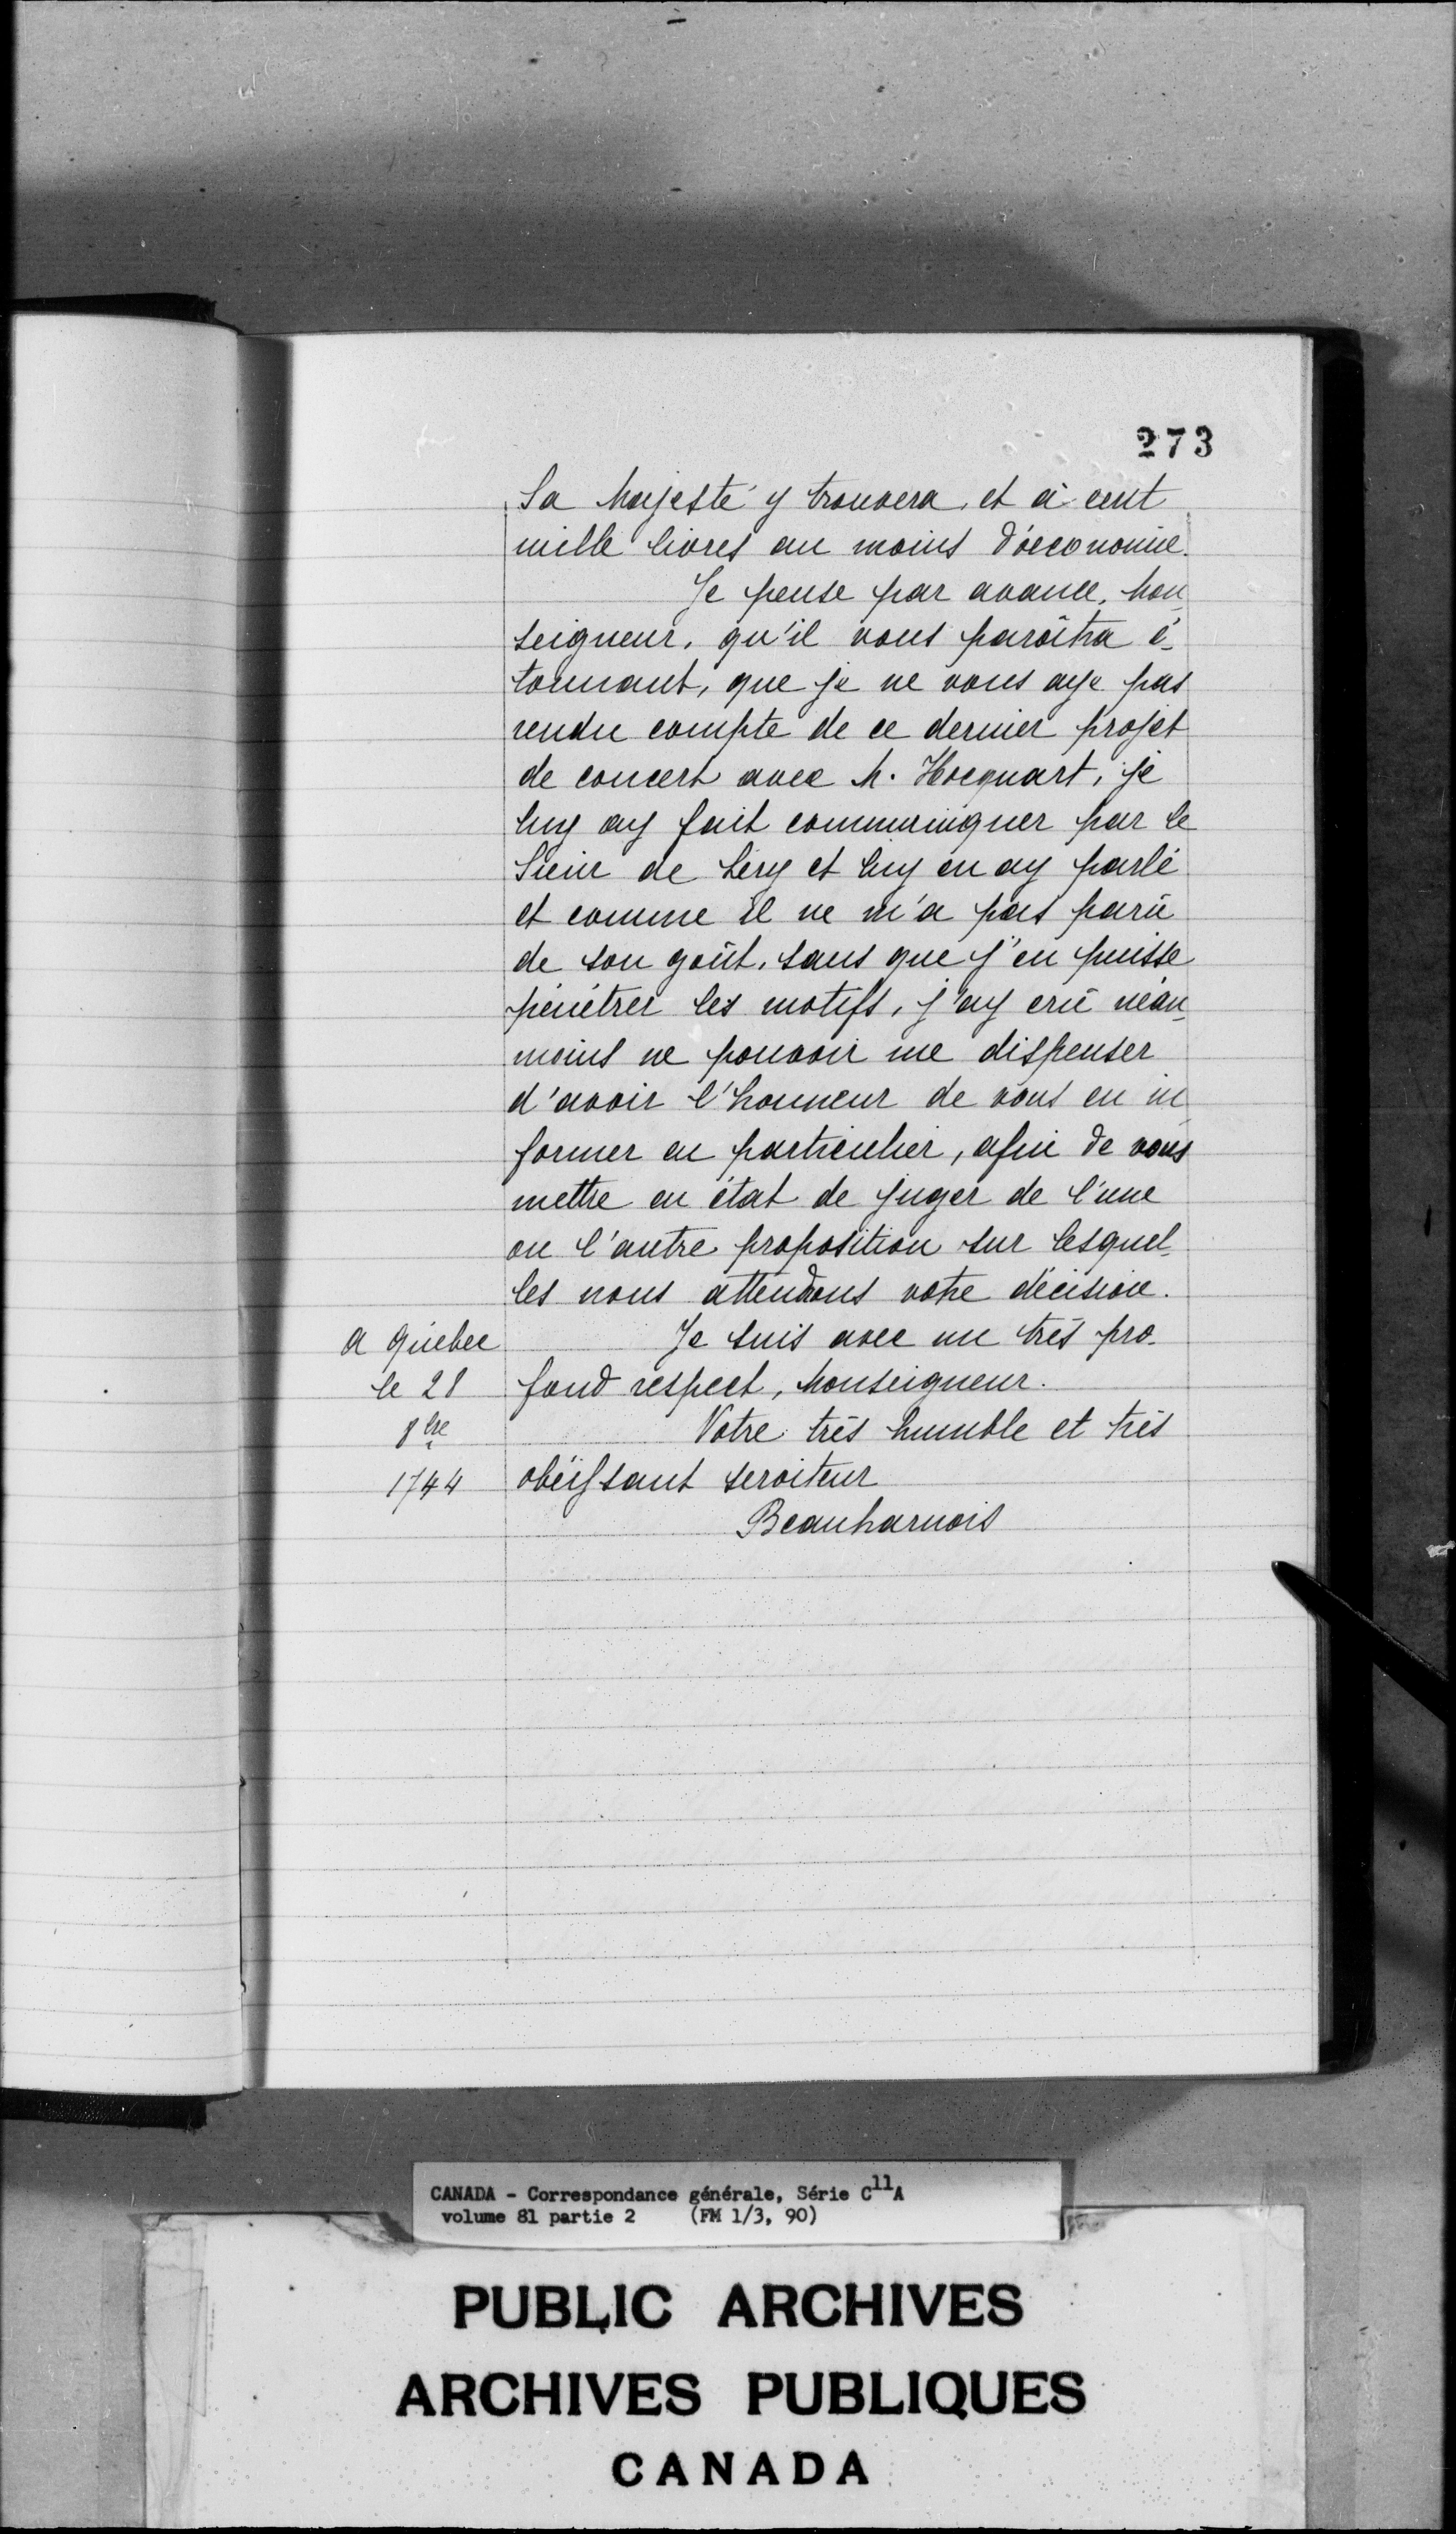 273
Sa Majesté y trouvera, et à cent
mille livres au moins d'œconomie.
Je pense par avance, Mon-
seigneur, qu'il vous paroîtra é-
tonnant, que je ne vous aye pas
rendu compte de ce dernier projet
de concert avec M. Hocquart, je
luy ay fait communiquer par le
Sieur de Léry et luy en ay parlé
et comme il ne m'a pas parû
de son goût, sans que j'en puisse
pénétrer les motifs, j'ay crû néan-
moins ne pouvoir me dispenser
d'avoir l'honneur de vous en in
former en particulier, afin de vous
mettre en état de juger de l'une
ou l'autre proposition sur lesquel-
les nous attendons votre décision.
A Québec
le 28
8bre
1744
Je suis avec un très pro-
fond respect, Monseigneur.
Votre très humble et très
obéissant serviteur
Beauharnois
CANADA - Correspondance générale, Série C11A
volume 81 partie 2 (FM 1/3, 90)
PUBLIC ARCHIVES
ARCHIVES PUBLIQUES
CANADA